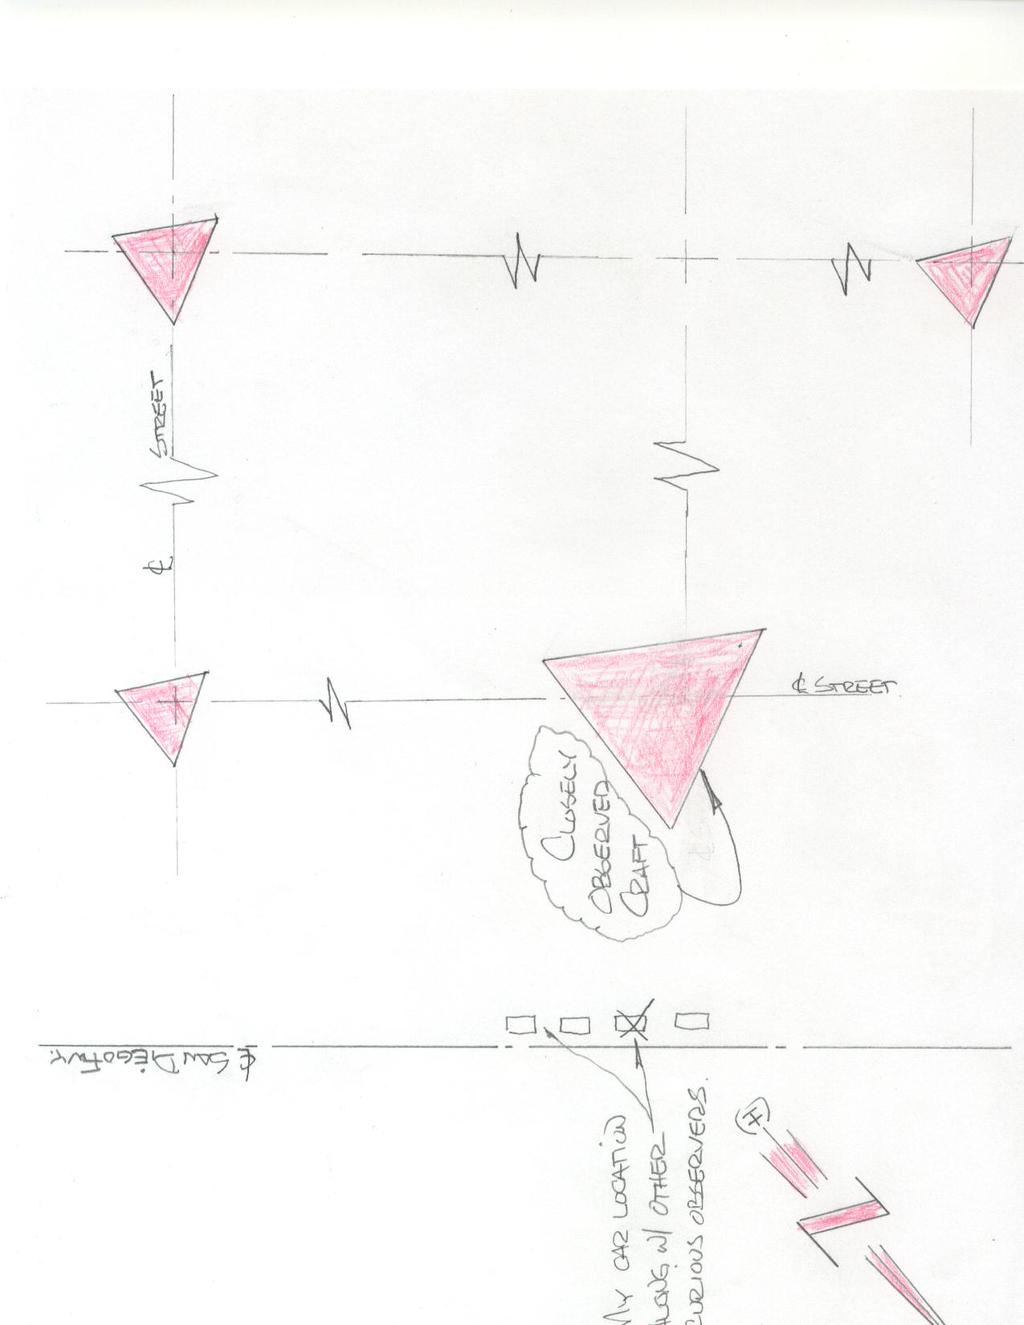 STREET
℄
℄ STREET
CLOSELY
OBSERVED
CRAFT
℄ SAN DIEGO FWY.
MY CAR LOCATION
ALONG W/ OTHER
CURIOUS OBSERVERS.
N